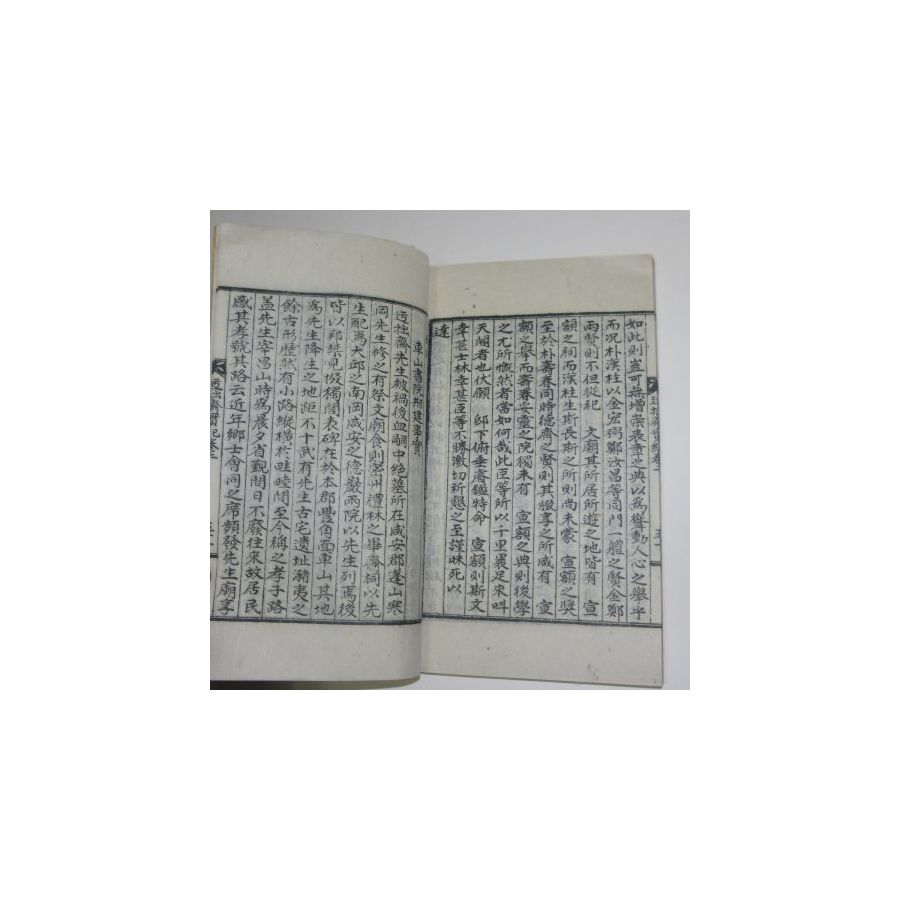 如此則豈可無增崇表章之典以爲聳動人心之舉乎
而况朴漢柱以金宏弼鄭汝昌等同門一體之賢金鄭
兩賢則不但從祀 文廟其所居所遊之地皆有 宣
額之祠而漢柱生斯長斯之所則尚未蒙 宣額之奬
至於朴壽春同時德齊之賢則其腏享之所咸有 宣
額之擧而壽春安靈之院獨未有 宣額之典則後學
之尤所慨然者當如何哉此臣等所以千里裹足來叫
天閽者也伏願 邸下俯垂睿鑑特命 宣額則斯文
幸甚士林幸甚臣等不勝激切祈懇之至謹昧死以
達
車山書院刱建事實
迃拙齋先生被禍後血嗣中絶墓所在咸安郡蓬山寒
岡先生修之有祭文廟食則密州禮林之畢齋祠以先
生配焉大邱之南岡咸安之德巖兩院以先生列焉後
皆以邦禁見撤獨閭表碑在於本郡豐角面車山其地
爲先生降生之地距不十武有先生古宅遺址瀦夷之
餘古形歷然有小路縱橫於畦畻間至今稱之孝子路
盖先生宰昌山時爲晨夕省覲間日不廢往來故居民
感其孝號其路云近年鄉士會同之席頻發先生廟享